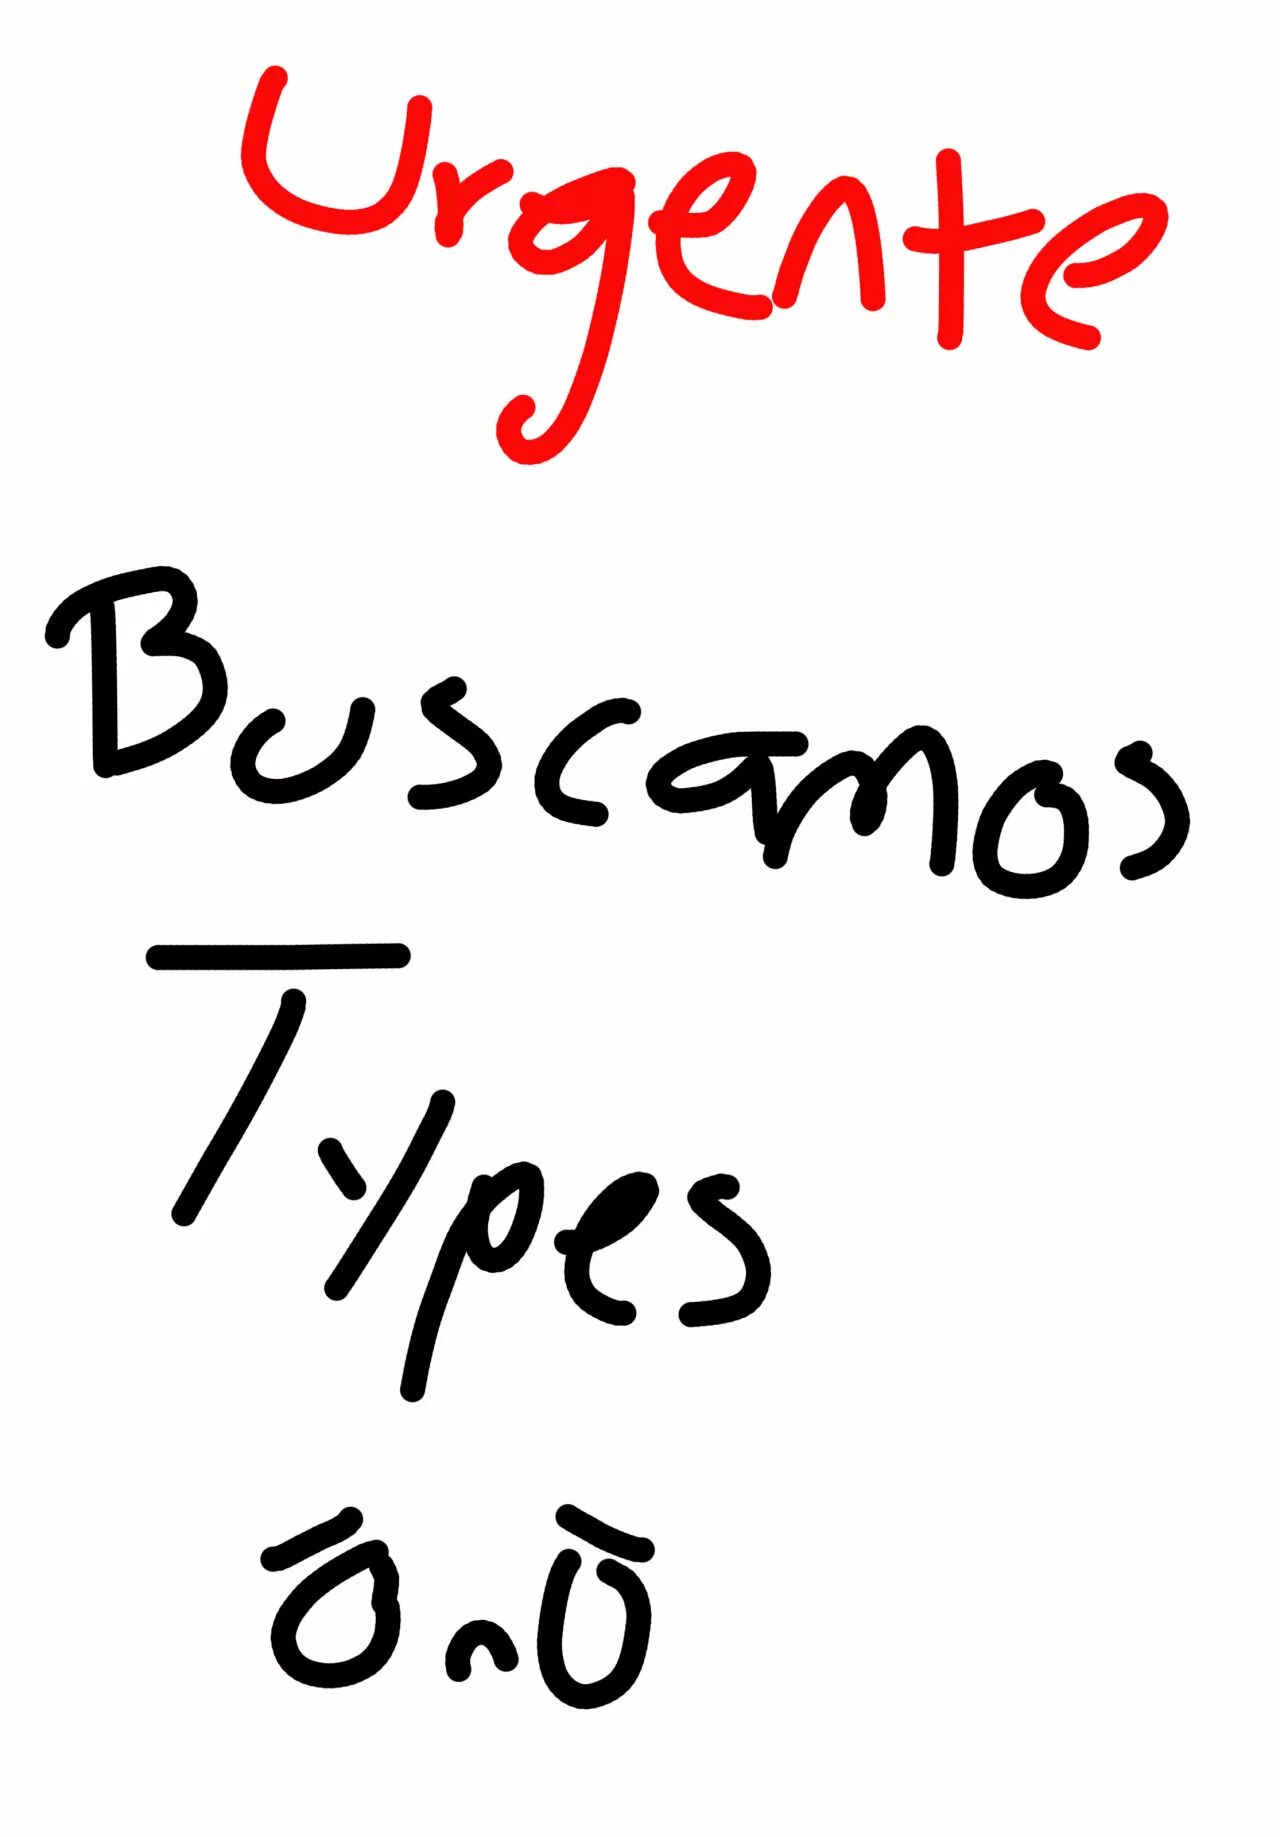 Urgente
Buscamos
Types